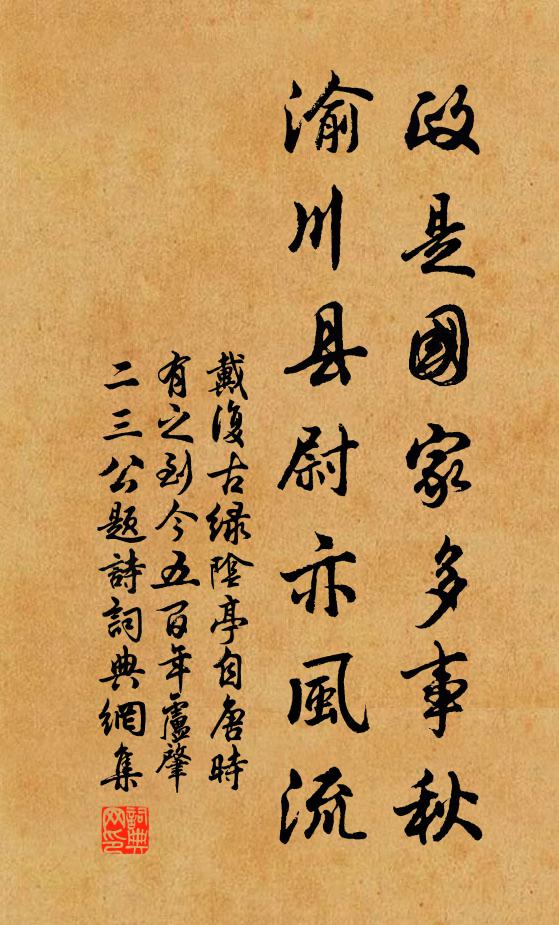 政是國家多事秋
渝川县尉亦風流
戴復古緑陰亭自唐時
有之到今五百年盧肇
二三公題詩詞典網集
詞典网印